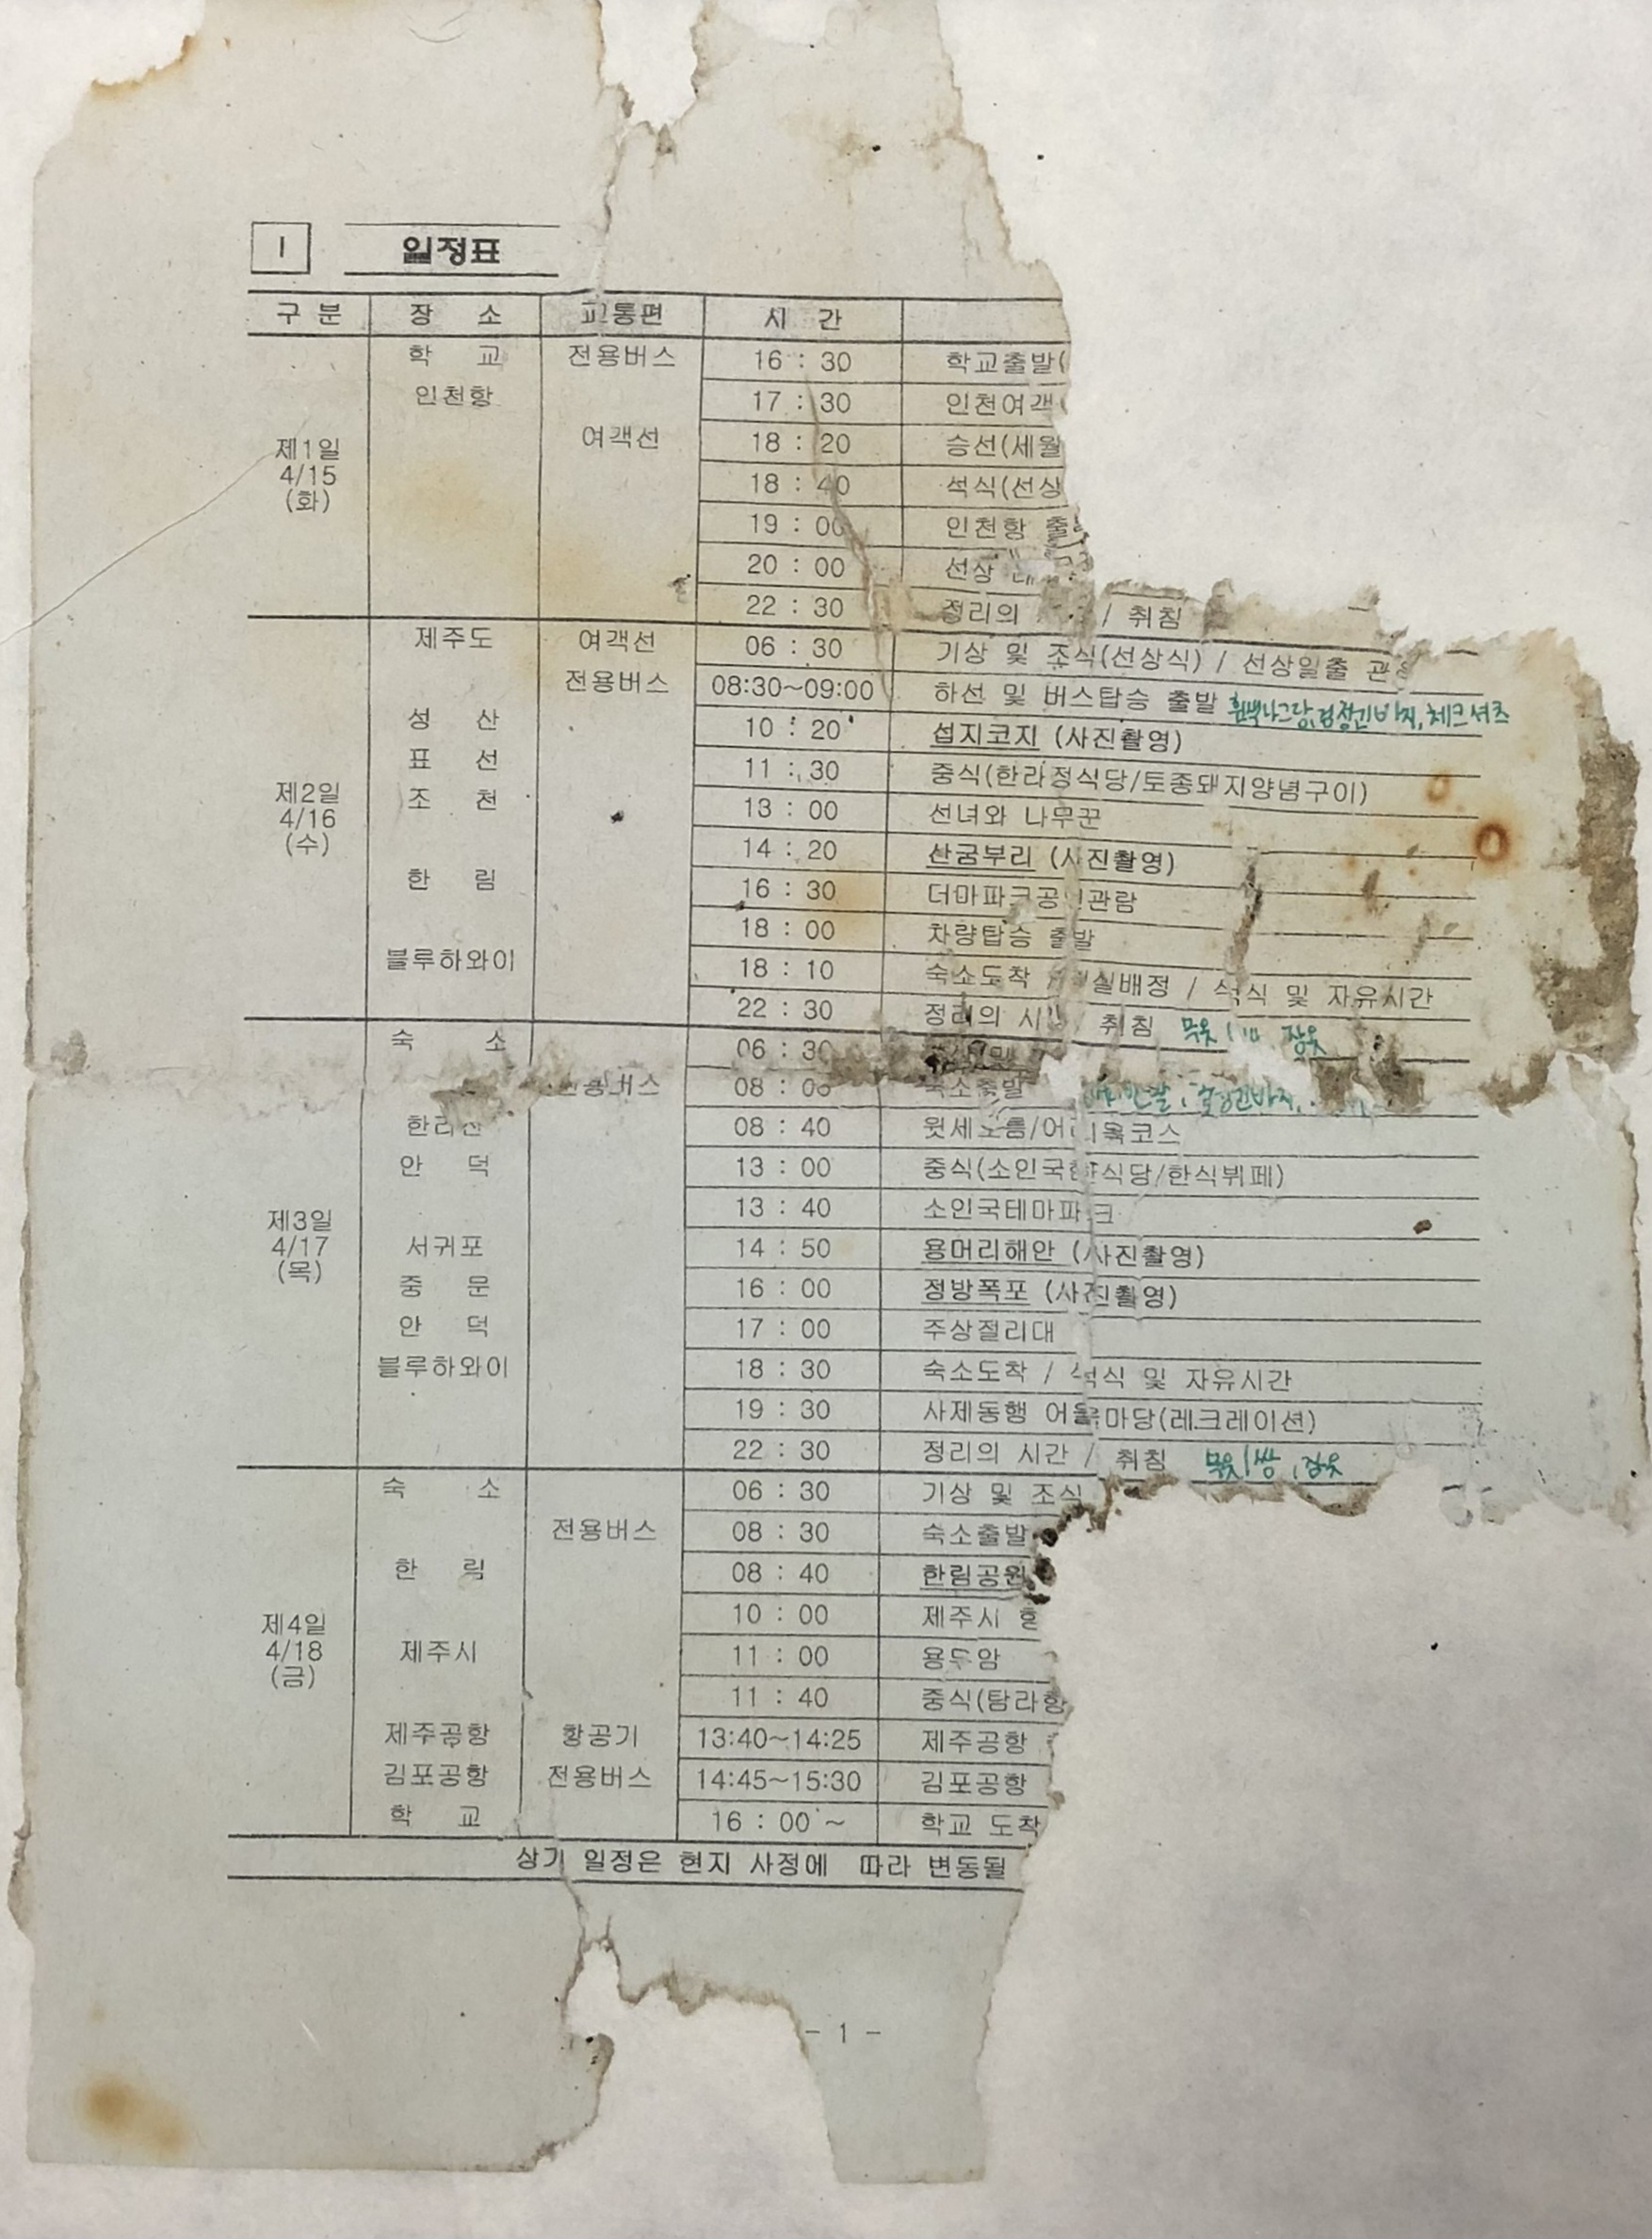 I 일정표
구 분 장 소 교통편 시 간
제1일
4/15
(화)
학 교 전용버스 16 : 30 학교출발(
인천항 17 : 30 인천여객
여객선 18 : 20 승선(세월
18 : 40 석식(선상
19 : 00 인천항
20 : 00 선상
22 : 30 정리의 / 취침
제2일
4/16
(수)
제주도 여객선 06 : 30 기상 및 조식(선상식) / 선상일출
전용버스 08:30~09:00 하선 및 버스탑승 출발 체크셔츠
성 산 10 : 20 섭지코지 (사진촬영)
표 선 11 : 30 중식(한라정식당/토종돼지양념구이)
조 천 13 : 00 선녀와 나무꾼
14 : 20 산굼부리 (사진촬영)
한 림 16 : 30 더마파크공연관람
18 : 00 차량탑승 출발
블루하와이 18 : 10 숙소도착 실배정 / 석식 및 자유시간
22 : 30 정리의 취침 잠옷
제3일
4/17
(목)
숙 소 06 : 30
전용버스 08 : 00 숙소출발
한라산 08 : 40 윗세오름/어리목코스
안 덕 13 : 00 중식(소인국 식당/한식뷔페)
13 : 40 소인국테마파크
서귀포 14 : 50 용머리해안 (사진촬영)
중 문 16 : 00 정방폭포 (사진촬영)
안 덕 17 : 00 주상절리대
블루하와이 18 : 30 숙소도착 / 석식 및 자유시간
19 : 30 사제동행 어울마당(레크레이션)
22 : 30 정리의 시간 / 취침 잠옷
제4일
4/18
(금)
숙 소 06 : 30 기상 및 조식
전용버스 08 : 30 숙소출발
한 림 08 : 40 한림공원
10 : 00 제주시
제주시 11 : 00 용두암
11 : 40 중식(탐라
제주공항 항공기 13:40~14:25 제주공항
김포공항 전용버스 14:45~15:30 김포공항
학 교 16 : 00 ~ 학교 도착
상기 일정은 현지 사정에 따라 변동될
- 1 -